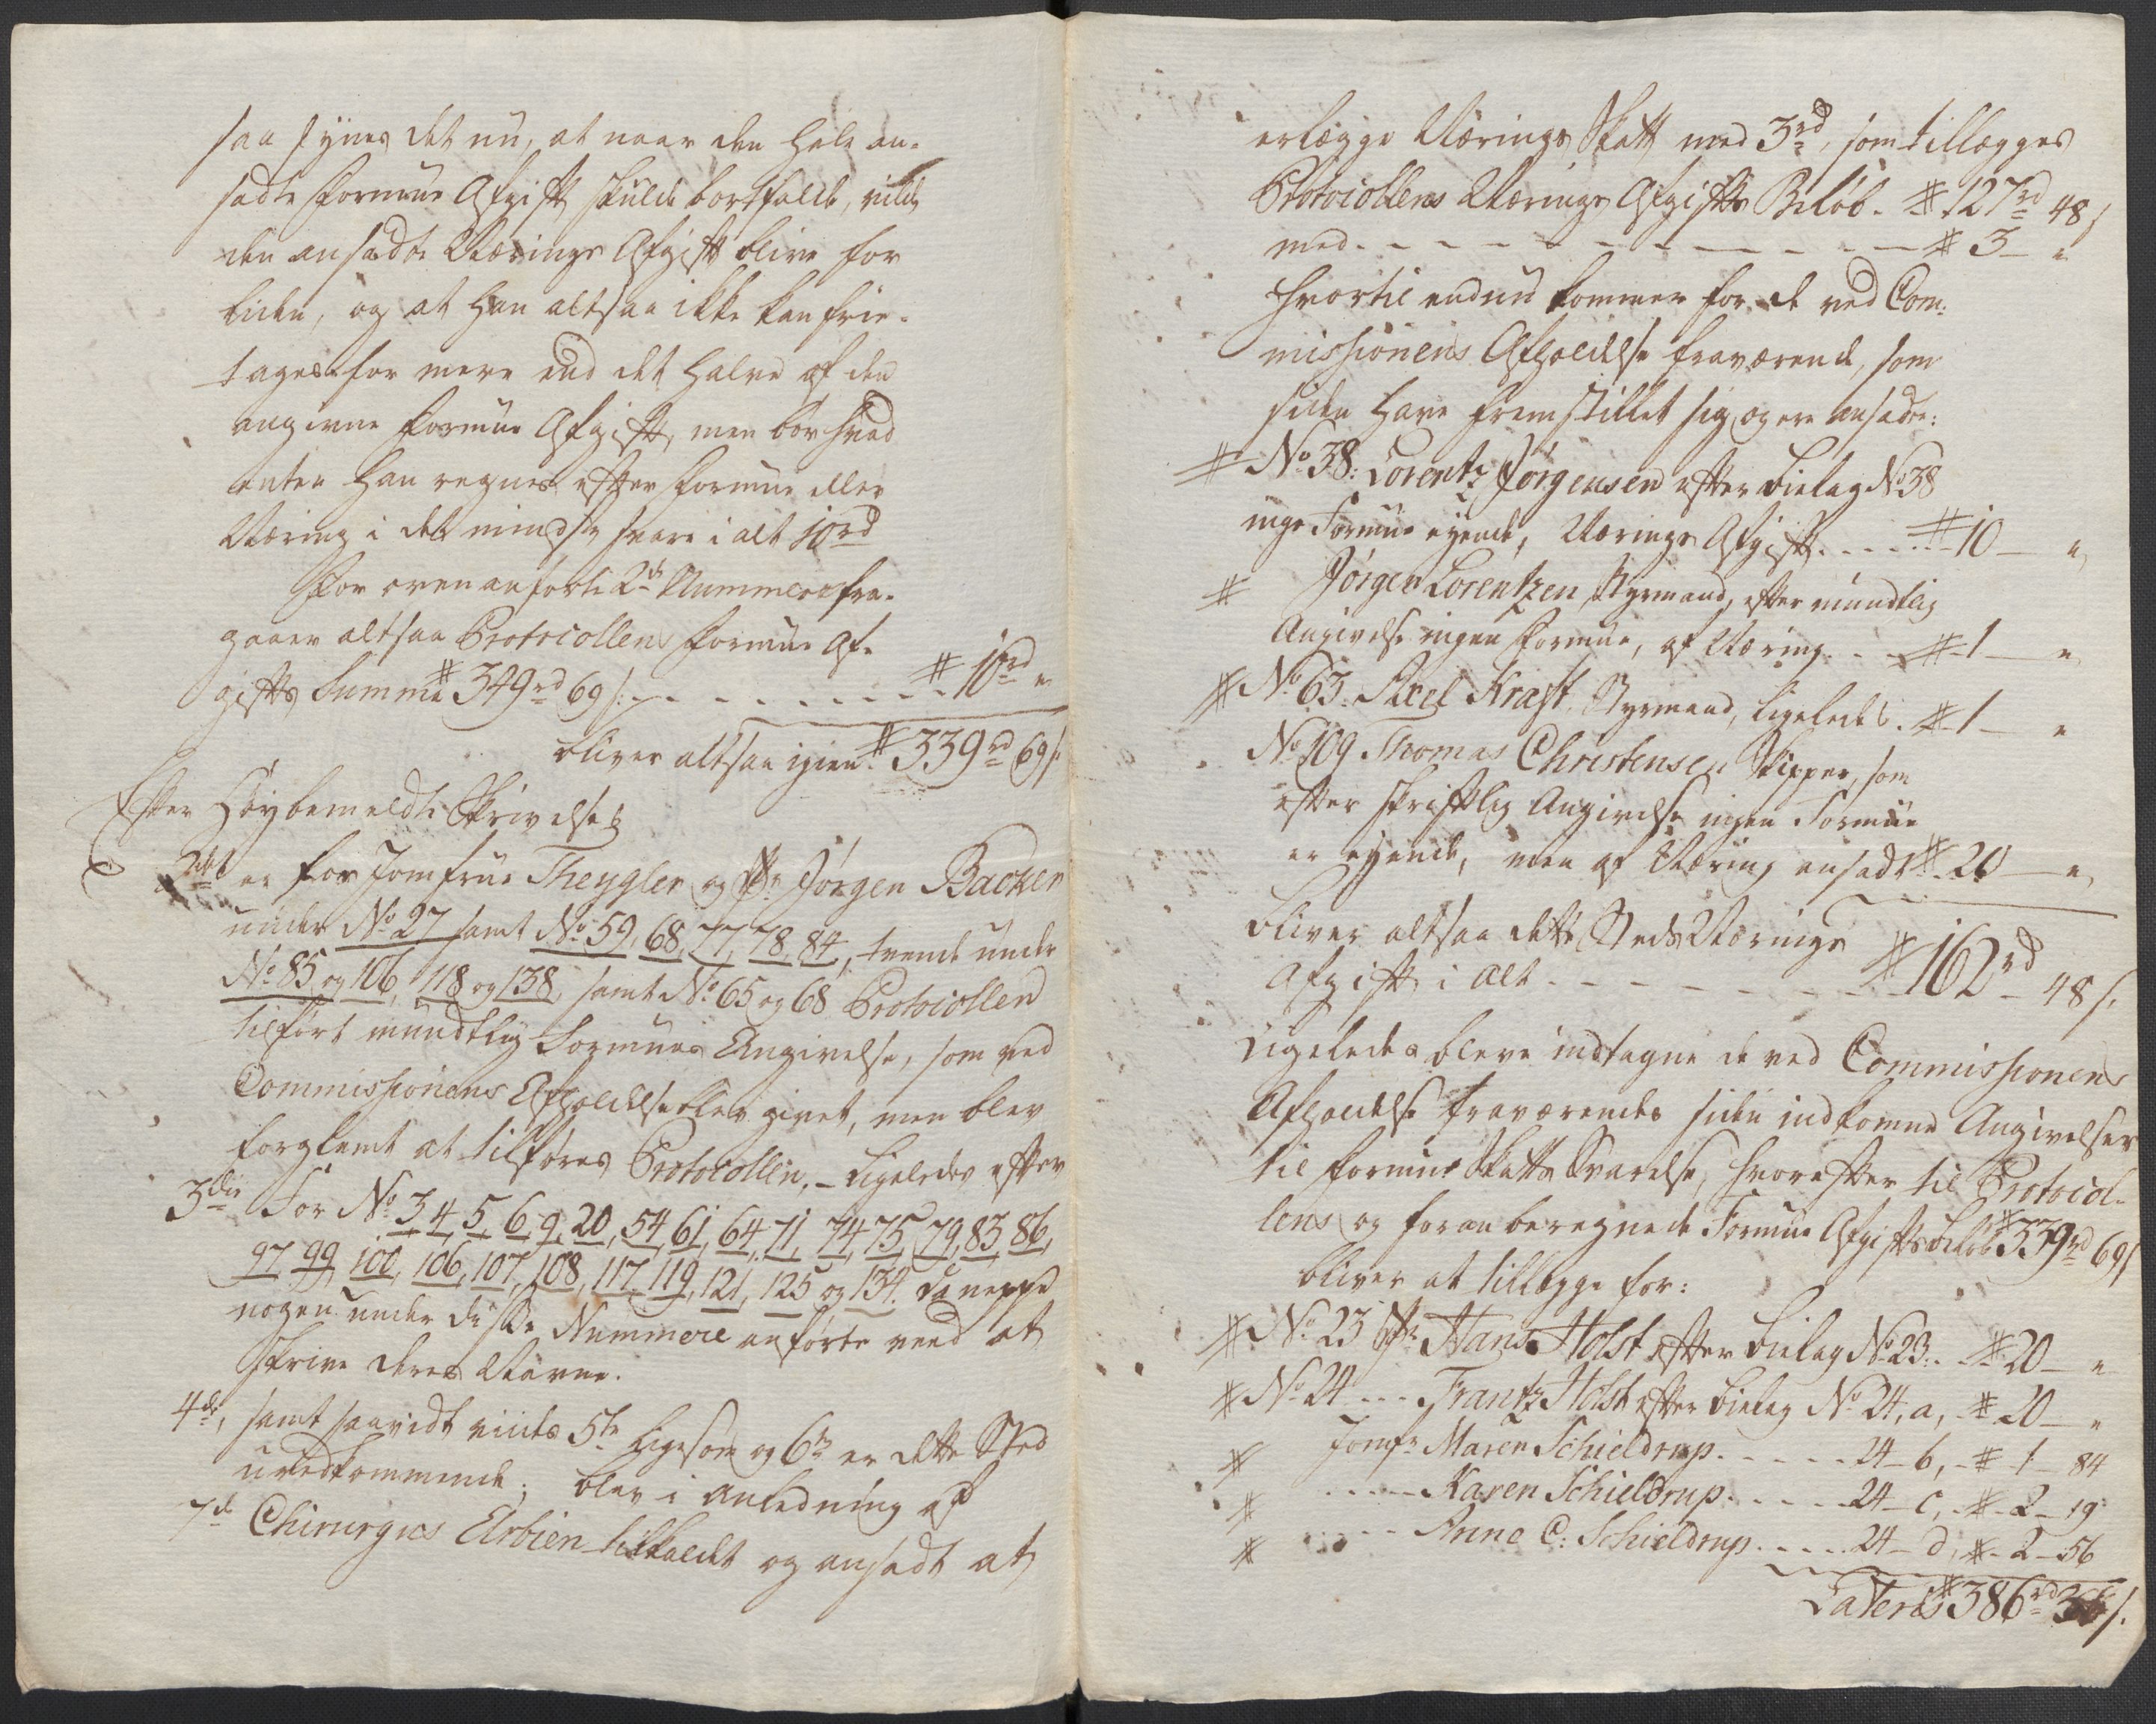 saa synes det nu, at naar den hele an-
sadte Formue Afgift skulde bortfalde, vilde
den ansadte Nærings Afgift blive for
liden, og at han altsaa ikke kan frie-
tages for mere end det halve af den
angivne Formue Afgift, men bør hvad
enten han regnes efter Formue eller
Næring i det mindste svare i alt 10 rd
For ovenanførte 2de Nummere fra-
gaaer altsaa Protocollens Formue Af-
gifts Summa # 349 rd 69 s. - - - - - - # 10 rd "
bliver altsaa igien # 339 rd 69 s.
Efter Høybemeldte Skrivelses
2det er for Jomfrue Theygler og Hr. Jørgen Backer
under No. 27 samt No. 59, 68, 77, 78, 84, tvende under
No. 85 og 106, 118 og 138, samt No. 65 og 68 Protocollen
tilført mundtlig Formues Angivelse, som ved
Commissionens Afholdelse blev givet, men blev
forglemt at tilføres Protocollen, – Ligeledes efter
3die For No. 3, 4, 5, 6, 9, 20, 54, 61, 64, 71, 74, 75, 79, 83, 86,
97, 99, 100, 106, 107, 108, 117, 119, 121, 125 og 134. da neppe
nogen under disse Nummere anførte veed at
skrive deres Navne.
4de, samt saavidt viides 5te ligesom og 6te er dette Sted
uvedkommende; blev i anledning af
7de Chirurgus Elobien tilkaldt og ansadt at
erlægge Nærings Skatt med 3 rd, som tillægges
Protocollens Nærings Afgifts Beløb - # 127 rd 48 s
med - - - - - - - - - # 3 - "
hvortil endnu kommer for de ved Com-
missionens Afholdelse fraværende, som
siden have fremstillet sig, og ere ansadte:
# No. 38: Lorentz Jørgensen efter bielag No. 38
inge Formue eyende, Nærings Afgift - - - - # 10 - "
# Jørgen Lorentzen, Styrmand, efter mundtlig
Angivelse ingen Formue, af Næring - - # 1 - "
# No. 63. Axel Kraft, Styrmand, ligeledes. # 1 - "
No. 109 Thomas Christensen Skipper, som
efter skriftlig Angivelse ingen Formue
er eyende, men af Næring ansadt # 20 - "
bliver altsaa dette Steds Nærings
Afgift i alt - - - - - - - # 162 rd 48 s.
Ligeledes bleve indtagne de ved Commissionens
Afholdelse fraværendes siden indkomne Angivelser
til Formue Skatts Svarelse, hvorefter til Protocol-
lens og foran beregnede Formue Afgifts beløb # 339 rd 69 s
bliver at tillægge for:
# No. 23 Hr. Hans Holst efter bielag No. 23. - # 20 - "
# No. 24 - - - Frantz Holst efter bielag No. 24, a, - # 20 - "
# Jomfr. Maren Schieldrup - - - - - 24 - b, - # 1 - 84
# - - - - Karen Schieldrup - - - - - 24 - c, - # 2 - 19
# - - - - Anne C: Schieldrup - - - - 24 - d, # - 2 - 56
Lateris # 386 rd 36 s.